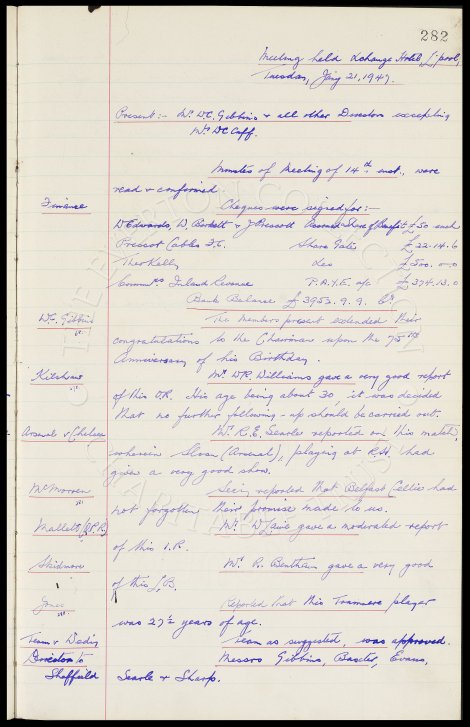 282
Meeting held Exchange Hotel, L'pool,
Tuesday, Jany 21, 1947.
Present:- Mr. W.C. Gibbins & all other Directors excepting
Mr. W.C. Cuff.
Minutes of Meeting of 14th inst., were
read & confirmed
Finance Cheques were signed for:-
W. Edwards, W. Borthwick & J. Prescott Accrued Share of Benefit £50 each
Prescot Cables F.C. Share Gates £22.14.6
Theo Kelly £500.0.0
Commrs Inland Revenue P.A.Y.E. a/c £374.13.0
Bank Balance £3953.9.9. Cr.
W.C. Gibbins The members present extended their
congratulations to the Chairman upon the 75th
Anniversary of his Birthday.
Kilshaw Mr. W.R. Williams gave a very good report
of this O.R. His age being about 30, it was decided
that no further following-up should be carried out.
Arsenal v Chelsea Mr. R.E. Searle reported on this match,
wherein Sloan (Arsenal), playing at R.H. had
given a very good show.
McMorran Secy. reported that Belfast Celtic had
not forgotten their promise made to us.
Mallett (Q.P.R.) Mr. gave a moderated report
of this I.R.
Skidmore Mr. R. Bentham gave a very good
of this L.B.
Jones Reported that this Tranmere player
was 27½ years of age.
Team v Wedny Team as suggested, was approved.
Directors to Messrs Gibbins, Baxter, Evans,
Sheffield Searle & Sharp.